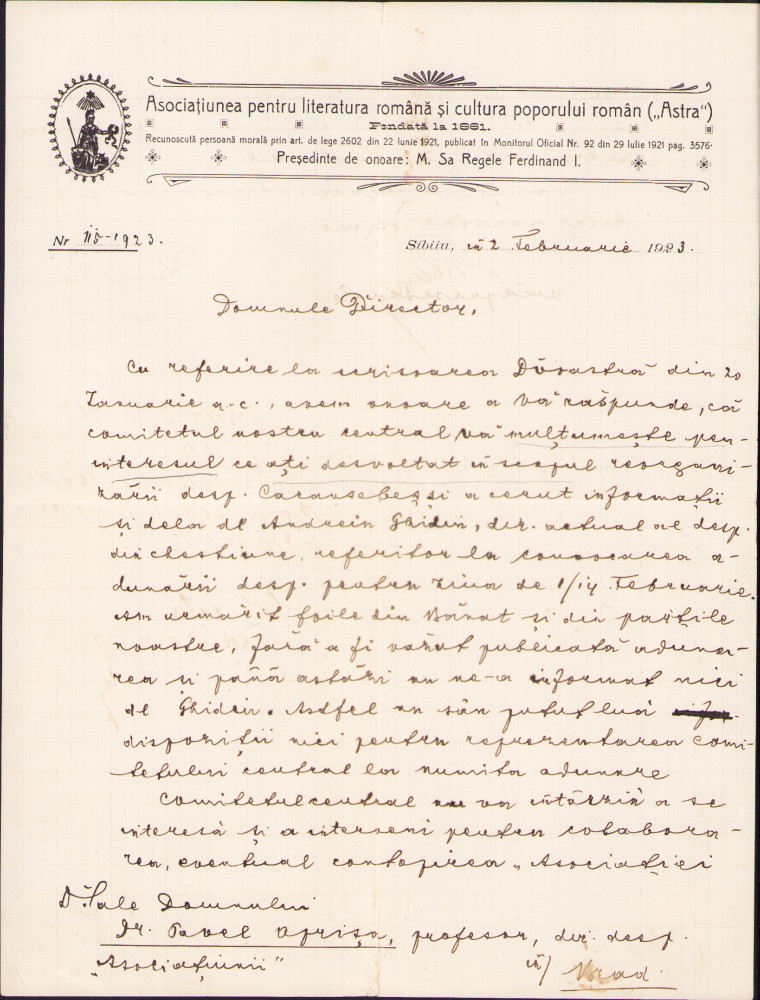 Asociațiunea pentru literatura română și cultura poporului român („Astra")
Fondată la 1861.
Recunoscută persoană morală prin art. de lege 2602 din 22 Iunie 1921, publicat în Monitorul Oficial Nr. 92 din 29 Iulie 1921 pag. 3576·
Președinte de onoare: M. Sa Regele Ferdinand I.
Nr 115-1923.
Sibiiu, în 2 Februarie 1923.
Domnule Director,
Cu referire la scrisoarea Dvoastră din 20
Ianuarie a.c., avem onoare a vă răspunde, că
comitetul nostru central vă mulțumește pen-
interesul ce ați desvoltat în scopul reorgani-
zării desp. Caransebeș și a cerut informații
și dela dl Andrein Ghidiu, dir. actual al desp.
din chestiune, referitor la convocarea a-
dunării desp. pentru ziua de 1/14 Februarie.
Am urmărit foile din Bănat și din părțile
noastre, fără a fi văzut publicată aduna-
rea și până astări nu ne-a informat nici
dl Ghidiu. Astfel nu s'an putut luă
dispoziții nici pentru reprezentarea comi-
tetului central la numita adunare
Comitetul central nu va întârzia a se
interesă și a interveni pentru colabora-
rea, eventual contopirea „Asociației
D-Sale Domnului
Dr. Pavel Oprișa, profesor, dir. desp.
„Asociațiunii"
în/ Brad.